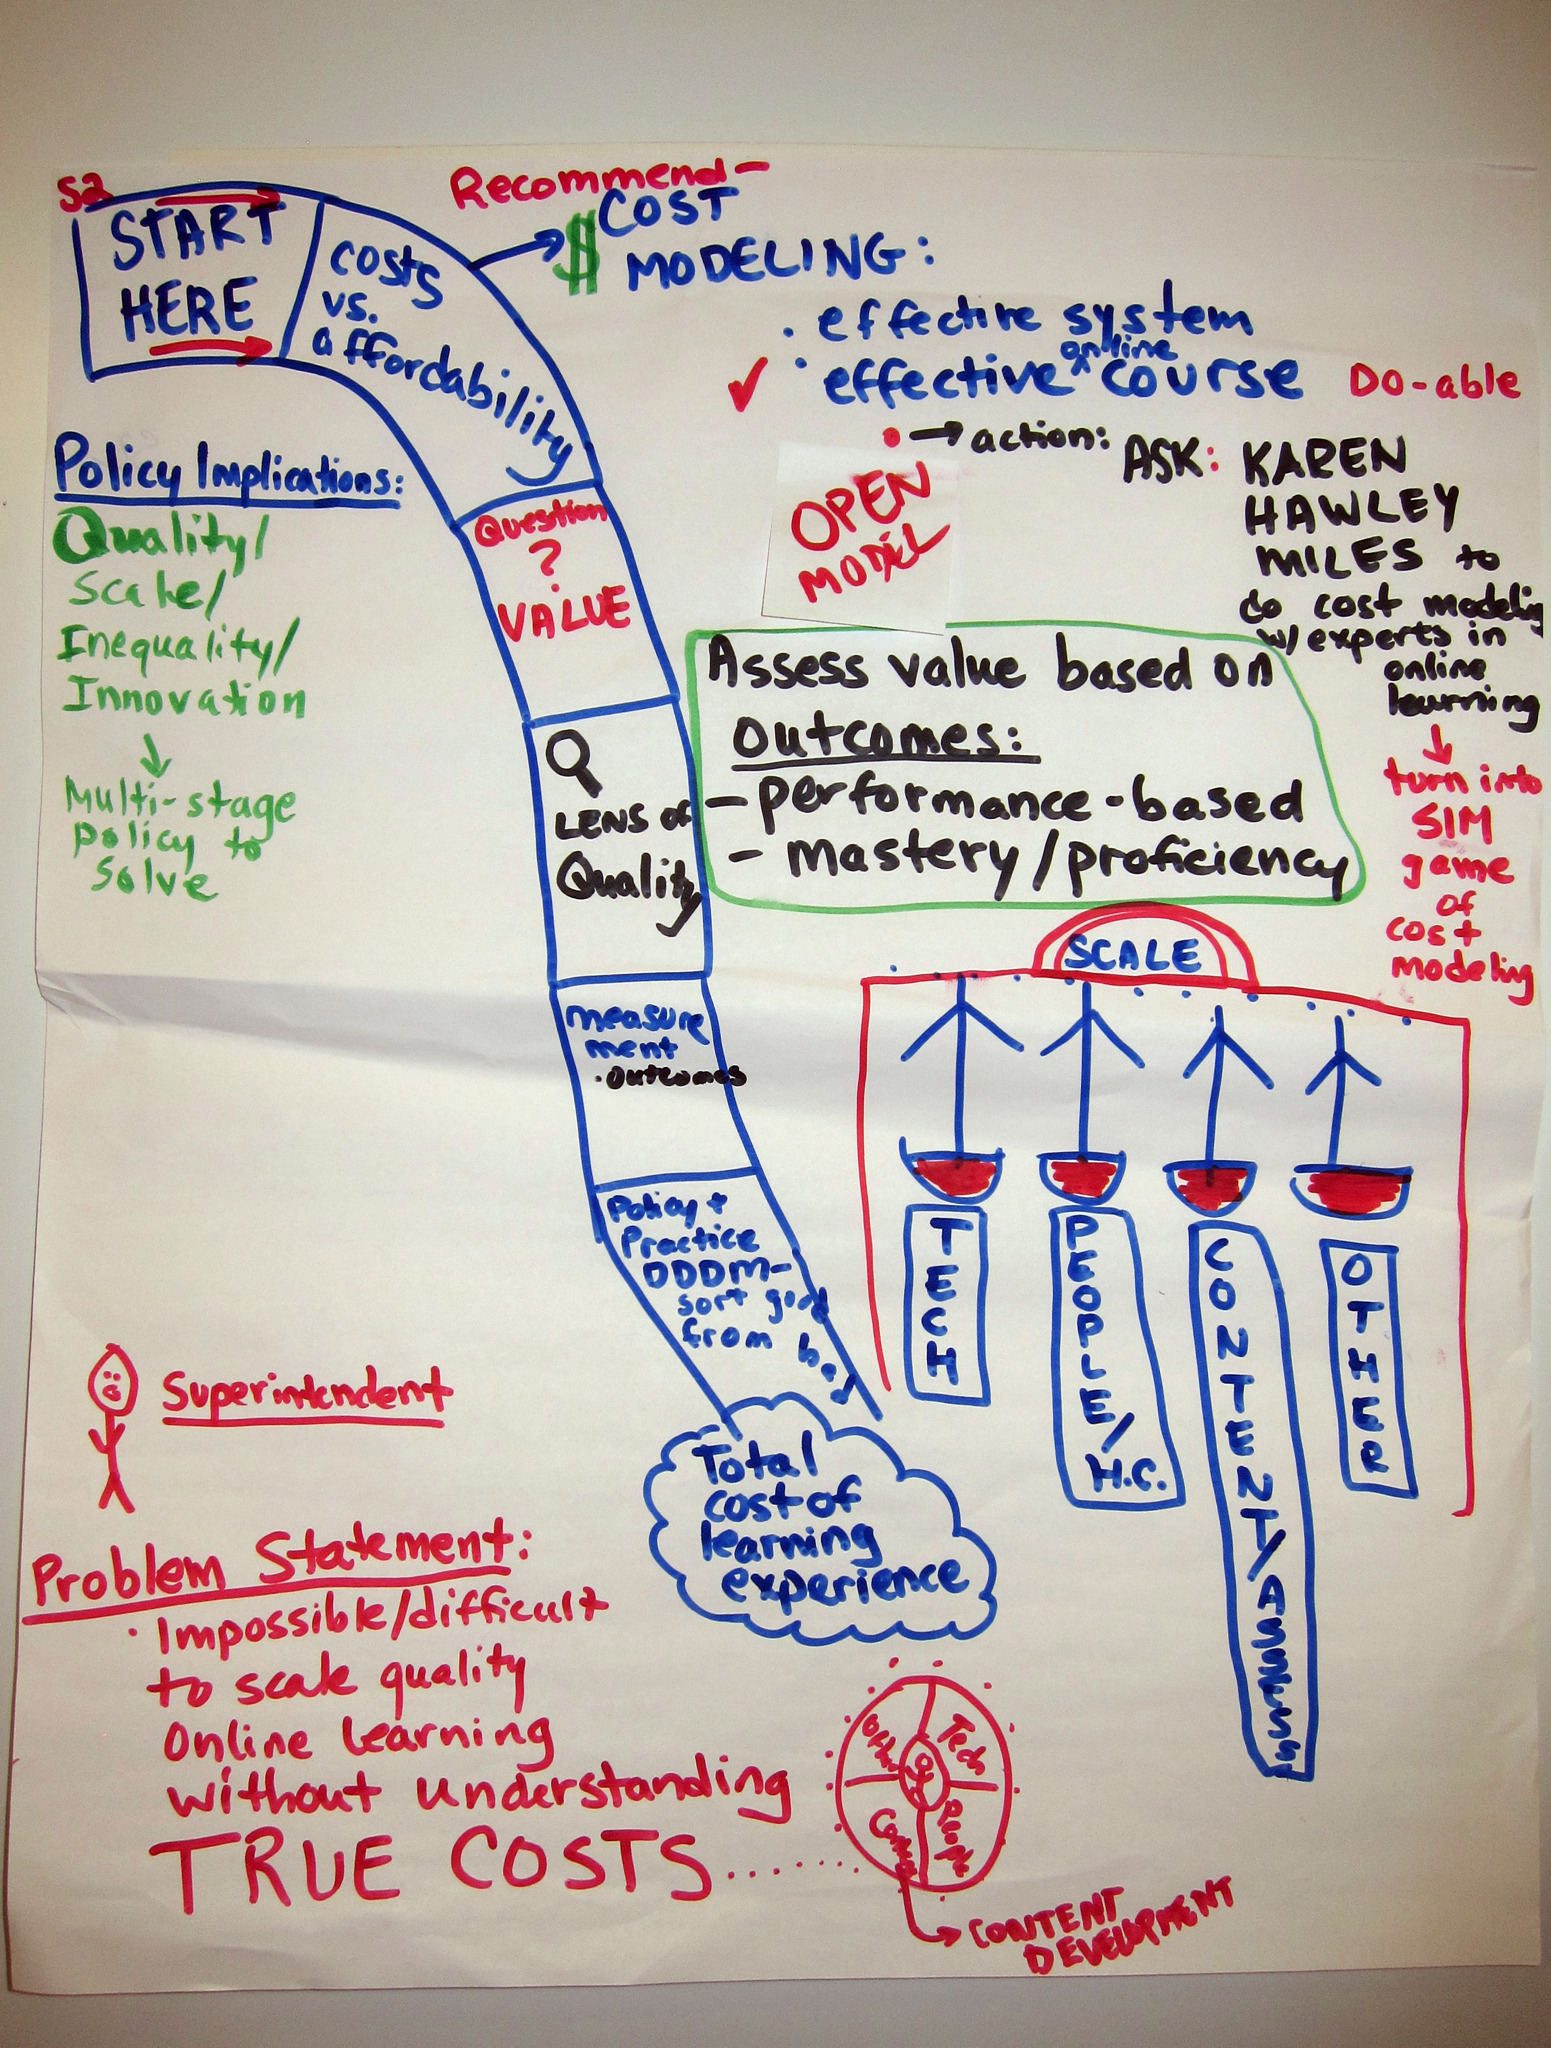 S2
START
HERE
costs
vs.
affordability
Recommend-
$ COST
MODELING:
. effective system
. effective online course
Do-able
→ action:
ASK: KAREN
HAWLEY
MILES to
do cost modeling
w/ experts in
online
learning
turn into
SIM
game
of
cost
modeling
OPEN
MODEL
Policy Implications:
Quality/
Scale/
Inequality/
Innovation
Multi-stage
policy to
solve
Question
?
VALUE
LENS of
Quality
Assess value based on
Outcomes:
- performance-based
- mastery/proficiency
measure
ment
. outcomes
Policy +
Practice
DDDM-
sort good
from bad
Total
cost of
learning
experience
SCALE
TECH
PEOPLE/
H.C.
CONTENT/ASSESS
OTHER
Superintendent
Problem Statement:
. Impossible/difficult
to scale quality
Online learning
without understanding
TRUE COSTS........
Other
Tech
People
CONTENT
DEVELOPMENT